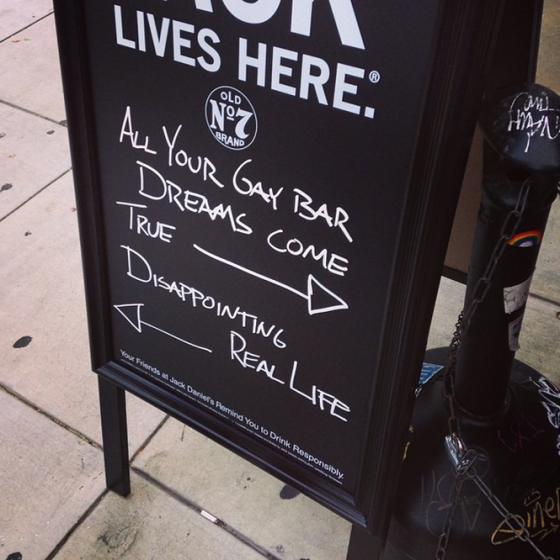 JACK
LIVES HERE.®
OLD
No. 7
BRAND
ALL YOUR GAY BAR
DREAMS COME
TRUE
DISAPPOINTING
REAL LIFE
Your Friends at Jack Daniel's Remind You to Drink Responsibly.